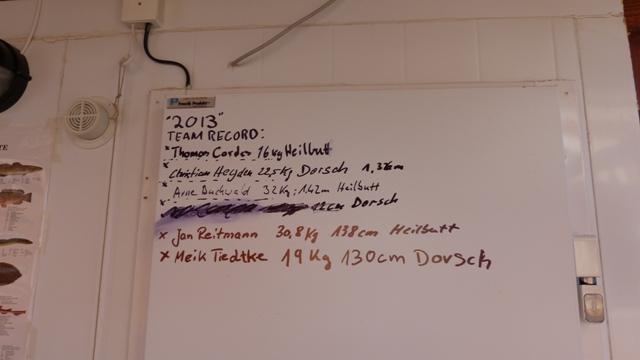 "2013"
TEAM RECORD:
* Thomas Cordes 16 kg Heilbutt
* Christian Heyden 22,5 Kg Dorsch 1,32m
* Arne Buchwald 32 Kg; 1.42 m Heilbutt
12cm Dorsch
x Jan Reitmann 30,8 kg 138 cm Heilbutt
x Meik Tiedtke 19 Kg 130cm Dorsch